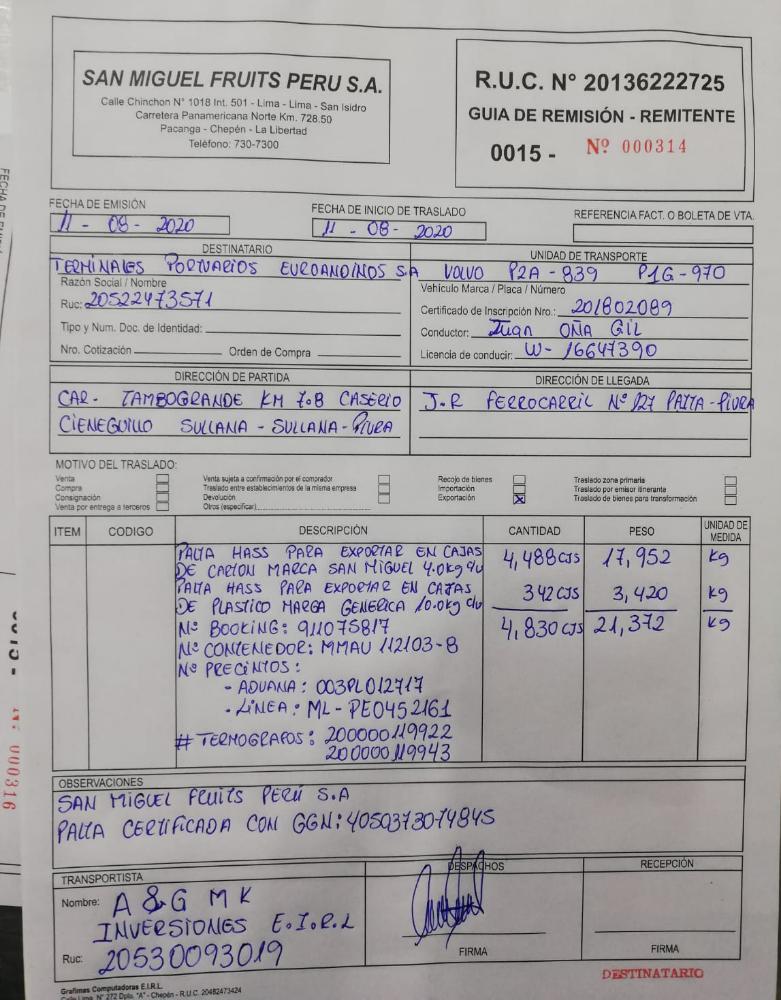 SAN MIGUEL FRUITS PERU S.A.
Calle Chinchon N° 1018 Int. 501 - Lima - Lima - San Isidro
Carretera Panamericana Norte Km. 728.50
Pacanga - Chepén - La Libertad
Teléfono: 730-7300
R.U.C. N° 20136222725
GUIA DE REMISIÓN - REMITENTE
0015 - Nº 000314
FECHA DE EMISIÓN
11 - 08 - 2020
FECHA DE INICIO DE TRASLADO
11 - 08 - 2020
REFERENCIA FACT. O BOLETA DE VTA.
DESTINATARIO
TERMINALES PORTUARIOS EUROANDINOS SA
Razón Social / Nombre
Ruc: 20522473571
Tipo y Num. Doc. de Identidad:
Nro. Cotización Orden de Compra
UNIDAD DE TRANSPORTE
VOLVO P2A - 839 P1G - 970
Vehículo Marca / Placa / Número
Certificado de Inscripción Nro.: 201802089
Conductor: Juan OÑA GIL
Licencia de conducir: W- 16647390
DIRECCIÓN DE PARTIDA
CAR- TAMBOGRANDE KM 7.8 CASERIO
CIENEGUILLO SULLANA - SULLANA - PIURA
DIRECCIÓN DE LLEGADA
J.R FERROCARRIL Nº 127 PAITA - PIURA
MOTIVO DEL TRASLADO:
Venta
Compra
Consignación
Venta por entrega a terceros
Venta sujeta a confirmación por el comprador
Traslado entre establecimientos de la misma empresa
Devolución
Otros (especificar)
Recojo de bienes
Importación
Exportación X
Traslado zona primaria
Traslado por emisor itinerante
Traslado de bienes para transformación
ITEM CODIGO DESCRIPCIÓN CANTIDAD PESO UNIDAD DE MEDIDA
PALTA HASS PARA EXPORTAR EN CAJAS
DE CARTON MARCA SAN MIGUEL 4.0kg c/u 4,488 CJS 17,952 kg
PALTA HASS PARA EXPORTAR EN CAJAS
DE PLASTICO MARCA GENERICA 10.0kg c/u 342 CJS 3,420 kg
Nº BOOKING: 911075817 4,830 CJS 21,372 kg
Nº CONTENEDOR: MMAU 112103-8
Nº PRECINTOS:
- ADUANA: 003PL012717
- LINEA: ML-PE0452161
# TERMOGRAFOS: 200000119922
200000119943
OBSERVACIONES
SAN MIGUEL FRUITS PERÚ S.A
PALTA CERTIFICADA CON GGN: 4050373074845
TRANSPORTISTA
Nombre: A & G M K
INVERSIONES E.I.R.L
Ruc: 20530093019
DESPACHOS
FIRMA
RECEPCIÓN
FIRMA
Grafimas Computadoras E.I.R.L.
Calle Lima N° 272 Dpto. "A" - Chepén - R.U.C. 20482473424
DESTINATARIO
000316